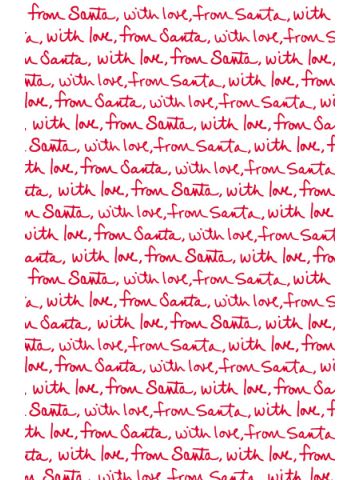 from Santa, with love, from Santa, with
a, with love, from Santa, with love, from S
n Santa, with love, from Santa, with love,
nta, with love, from Santa, with love, from
love, from Santa, with love, from Santa, wi
, with love, from Santa, with love, from Sa
Santa, with love, from Santa, with love, f
th love, from Santa, with love, from Santa
ta, with love, from Santa, with love, from
m Santa, with love, from Santa, with love
with love, from Santa, with love, from Sant
anta, with love, from Santa, with love, from
from Santa, with love, from Santa, with
a, with love, from Santa, with love, from S
n Santa, with love, from Santa, with love,
nta, with love, from Santa, with love, from
love, from Santa, with love, from Santa, wi
, with love, from Santa, with love, from Sa
Santa, with love, from Santa, with love, f
th love, from Santa, with love, from Santa
ta, with love, from Santa, with love, from
m Santa, with love, from Santa, with love